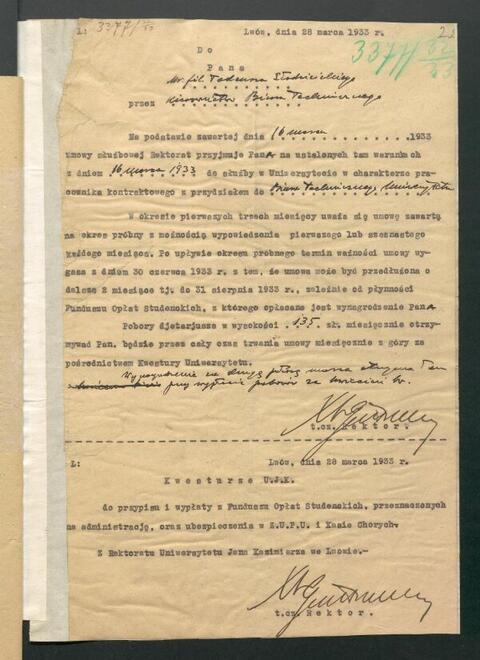 L: 3377/33
Lwów, dnia 28 marca 1933 r.
3377/32/33
Do
Pana
mr. fil. Tadeusza
przez Kierownika Biura Technicznego
Na podstawie zawartej dnia 16 marca 1933
umowy służbowej Rektorat przyjmuje PanA na ustalonych tam warunkach
z dniem 16 marca 1933 do służby w Uniwersytecie w charakterze pra-
cownika kontraktowego z przydziałem do Biura Technicznego Uniwersytetu
W okresie pierwszych trzech miesięcy uważa się umowę zawartą
na okres próbny z możnością wypowiedzenia pierwszego lub szesnastego
każdego miesiąca. Po upływie okresu próbnego termin ważności umowy wy-
gasa z dniem 30 czerwca 1933 r. z tem, że umowa może być przedłużona o
dalsze 2 miesiące tj. do 31 sierpnia 1933 r., zależnie od płynności
Funduszu Opłat Studenckich, z którego opłacane jest wynagrodzenie PanA
Pobory djetarjusza w wysokości 135 zł. miesięcznie otrzy-
mywać Pan będzie przez cały czas trwania umowy miesięcznie z góry za
pośrednictwem Kwestury Uniwersytetu.
Wynagrodzenie za drugą połowę marca otrzyma Pan
przy wypłacie poborów za kwiecień br.
t.cz. Rektor.
L:
Lwów, dnia 28 marca 1933 r.
Kwesturze U.J.K.
do przypisu i wypłaty z Funduszu Opłat Studenckich, przeznaczonych
na administrację, oraz ubezpieczenia w Z.U.P.U. i Kasie Chorych.
Z Rektoratu Uniwersytetu Jana Kazimierza we Lwowie.-
t.cz. Rektor.